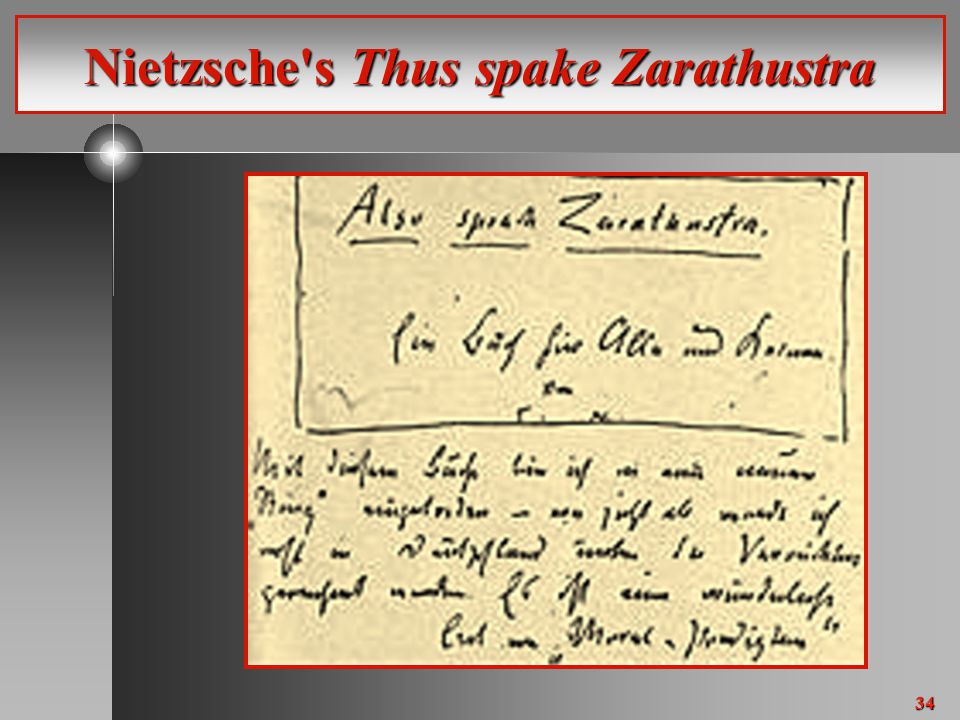 Nietzsche's Thus spake Zarathustra
Also sprach Zarathustra.
Ein Buch für Alle und Keinen.
von
Mit diesem Buche bin ich in einen neuen
„Ring" eingetreten – von jetzt ab werde ich
wohl in Deutschland unter die Verrückten
gerechnet werden. Es ist eine wunderliche
Art von „Moral-Predigten"
34